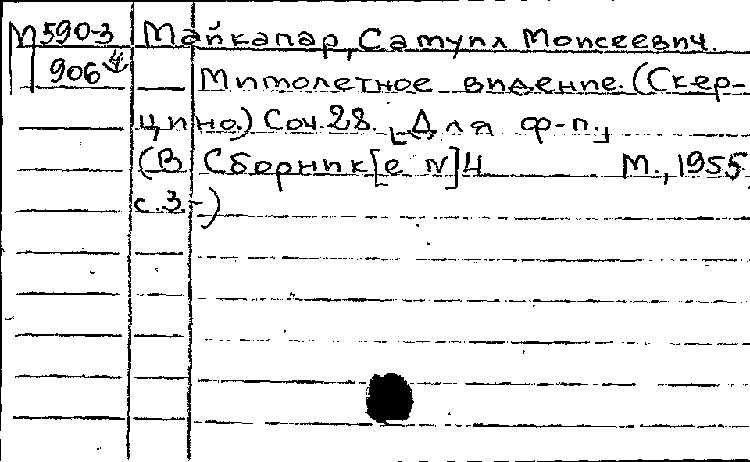 М590-3 Майкапар, Самуил Моисеевич.
906 Мимолетное видение. (Скер-
цино.) Соч. 28. [Для ф-п.]
(В Сборник[е N]4 М., 1955
с. 3-)